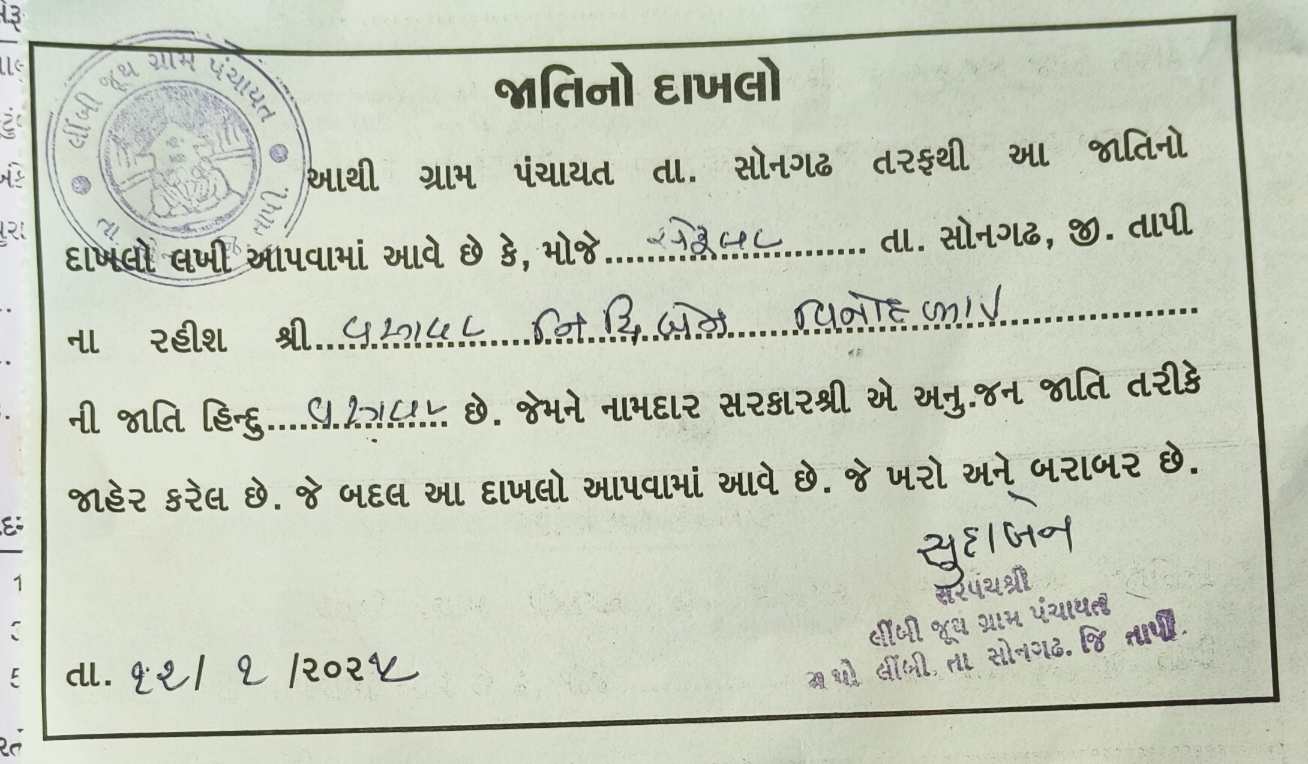 લીંબી જૂથ ગ્રામ પંચાયત
તા જિ તાપી.
જાતિનો દાખલો
આથી ગ્રામ પંચાયત તા. સોનગઢ તરફથી આ જાતિનો
દાખલો લખી આપવામાં આવે છે કે, મોજે.................... તા. સોનગઢ, જી. તાપી
ના રહીશ શ્રી.... નિધિબેન વિનોદભાઈ
ની જાતિ હિન્દુ.................. છે. જેમને નામદાર સરકારશ્રી એ અનુ.જન જાતિ તરીકે
જાહેર કરેલ છે. જે બદલ આ દાખલો આપવામાં આવે છે. જે ખરો અને બરાબર છે.
સુદાબેન
સરપંચશ્રી
લીંબી જૂથ ગ્રામ પંચાયત
લીંબી. તા સોનગઢ. જિ તાપી.
તા. ૧૨/ ૧ /૨૦૨૪